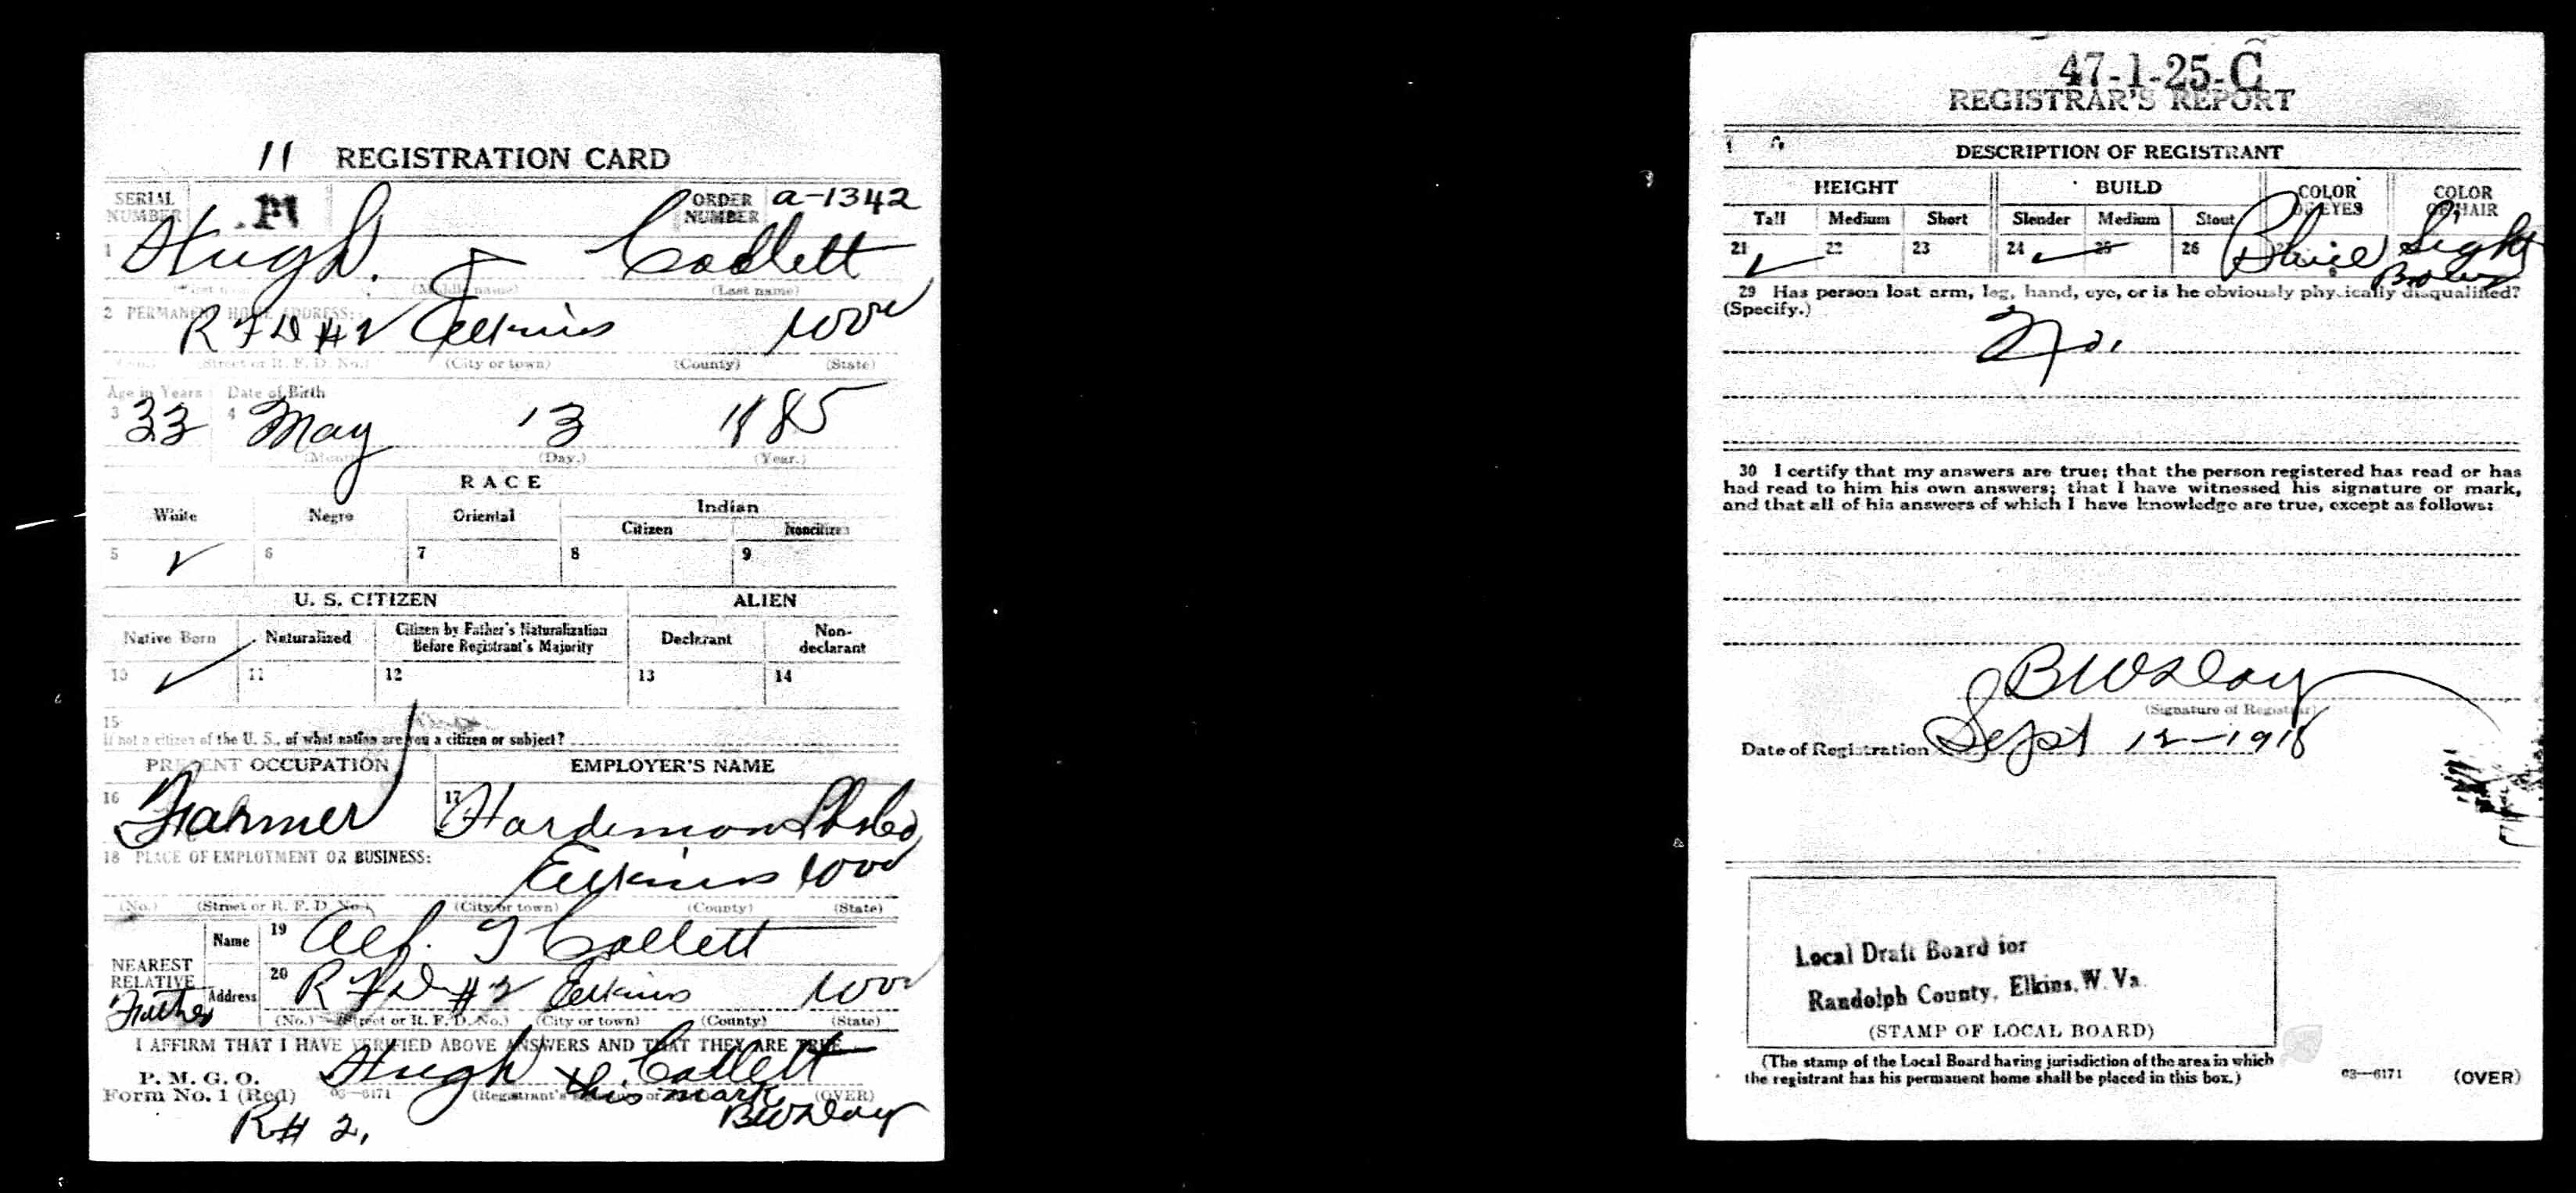 11 REGISTRATION CARD
SERIAL NUMBER
ORDER NUMBER a-1342
1 Hugh. Collett
(Middle name) (Last name)
2 PERMANENT HOME ADDRESS:
R F D #2 Elkins WVa
(Street or R. F. D. No.) (City or town) (County) (State)
Age in Years Date of Birth
3 33 4 May 13 1885
(Month) (Day.) (Year.)
RACE
White Negro Oriental Indian
Citizen Noncitizen
5 ✓ 6 7 8 9
U. S. CITIZEN ALIEN
Native Born Naturalized Citizen by Father's Naturalization Before Registrant's Majority Declarant Non-declarant
10 ✓ 11 12 13 14
15
If not a citizen of the U. S., of what nation are you a citizen or subject?
PRESENT OCCUPATION EMPLOYER'S NAME
16 Farmer 17
18 PLACE OF EMPLOYMENT OR BUSINESS:
Elkins WVa
(No.) (Street or R. F. D. No.) (City or town) (County) (State)
NEAREST RELATIVE Father
Name 19 Collett
Address 20 R F D #2 Elkins WVa
(No.) (Street or R. F. D. No.) (City or town) (County) (State)
I AFFIRM THAT I HAVE VERIFIED ABOVE ANSWERS AND THAT THEY ARE TRUE
P. M. G. O.
Form No. 1 (Red) 03—6171
Hugh x Collett
his mark
(Registrant's signature or (OVER)
R# 2.
47-1-25-C
REGISTRAR'S REPORT
DESCRIPTION OF REGISTRANT
HEIGHT BUILD COLOR OF EYES COLOR OF HAIR
Tall Medium Short Slender Medium Stout
21 ✓ 22 23 24 ✓ 25 26 Blue Light Brown
29 Has person lost arm, leg, hand, eye, or is he obviously physically disqualified?
(Specify.)
No.
30 I certify that my answers are true; that the person registered has read or has
had read to him his own answers; that I have witnessed his signature or mark,
and that all of his answers of which I have knowledge are true, except as follows:
(Signature of Registrar)
Date of Registration Sept 12-1918
Local Draft Board for
Randolph County, Elkins, W. Va.
(STAMP OF LOCAL BOARD)
(The stamp of the Local Board having jurisdiction of the area in which
the registrant has his permanent home shall be placed in this box.)
03—6171 (OVER)